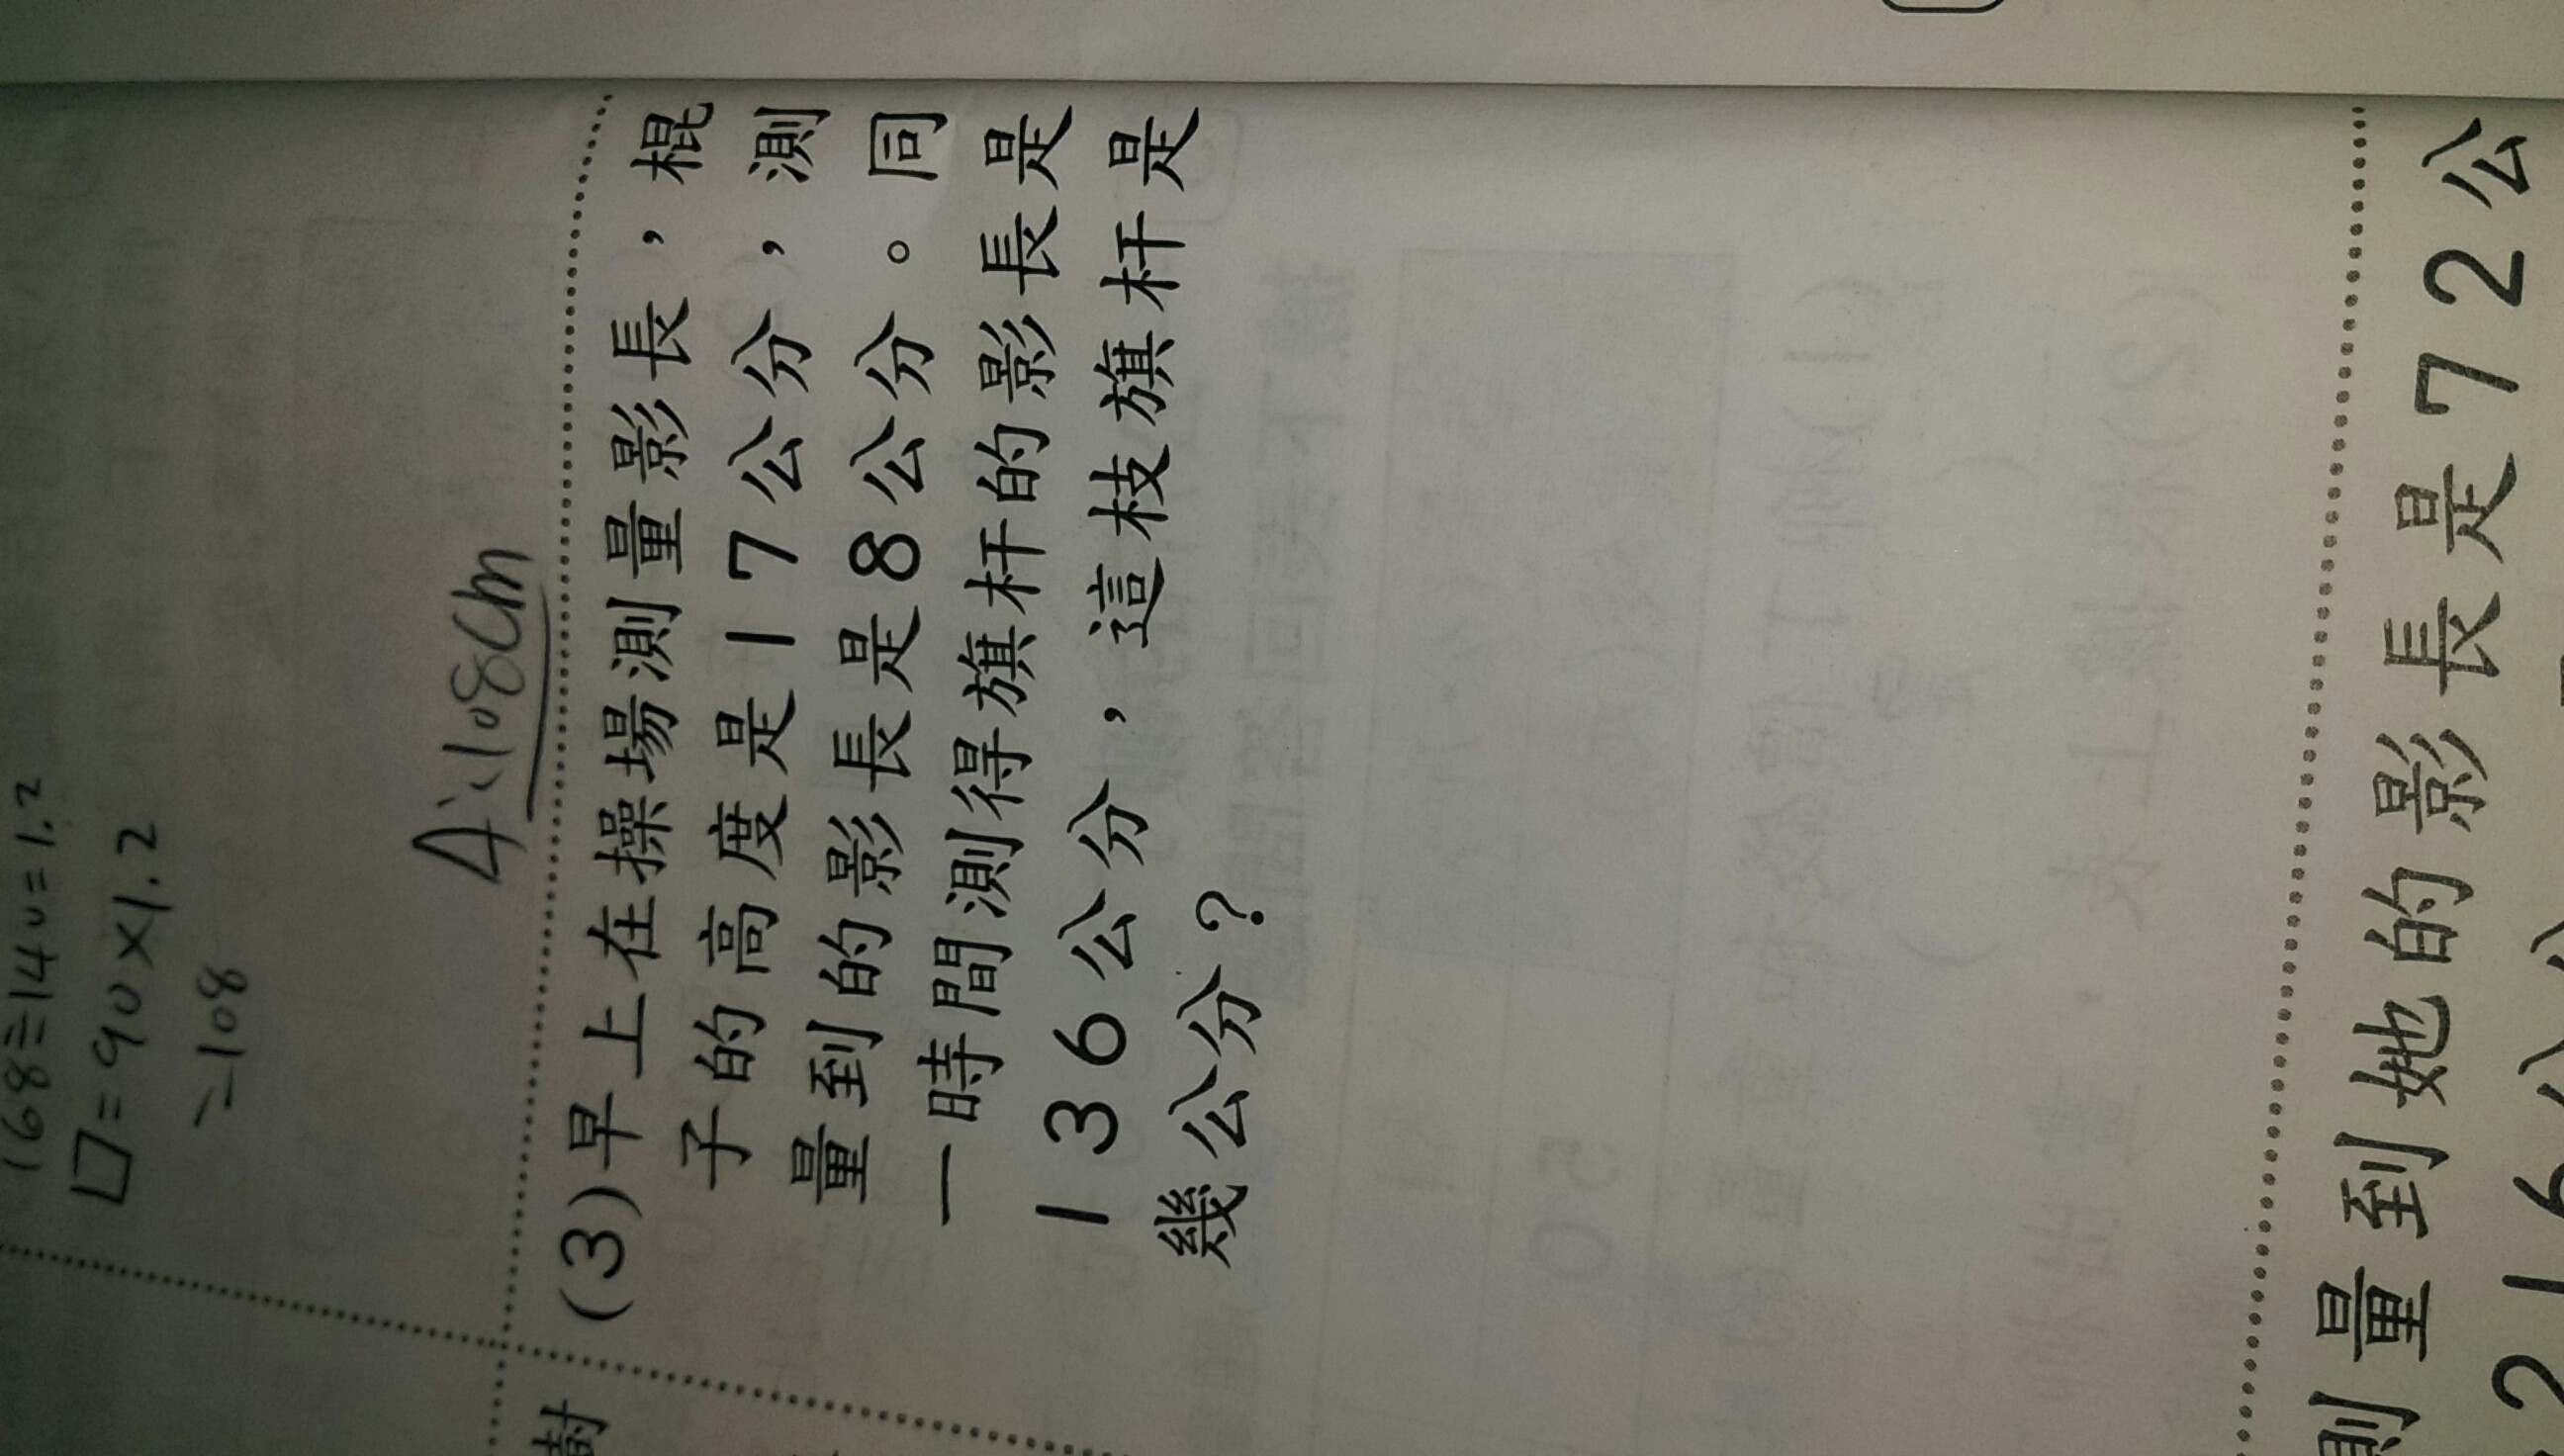 168÷140=1.2
□=90×1.2
=108
A:108cm
(3)早上在操場測量影長，棍
子的高度是17公分，測
量到的影長是8公分。同
一時間測得旗杆的影長是
136公分，這枝旗杆是
幾公分？
樹
測量到她的影長是72公